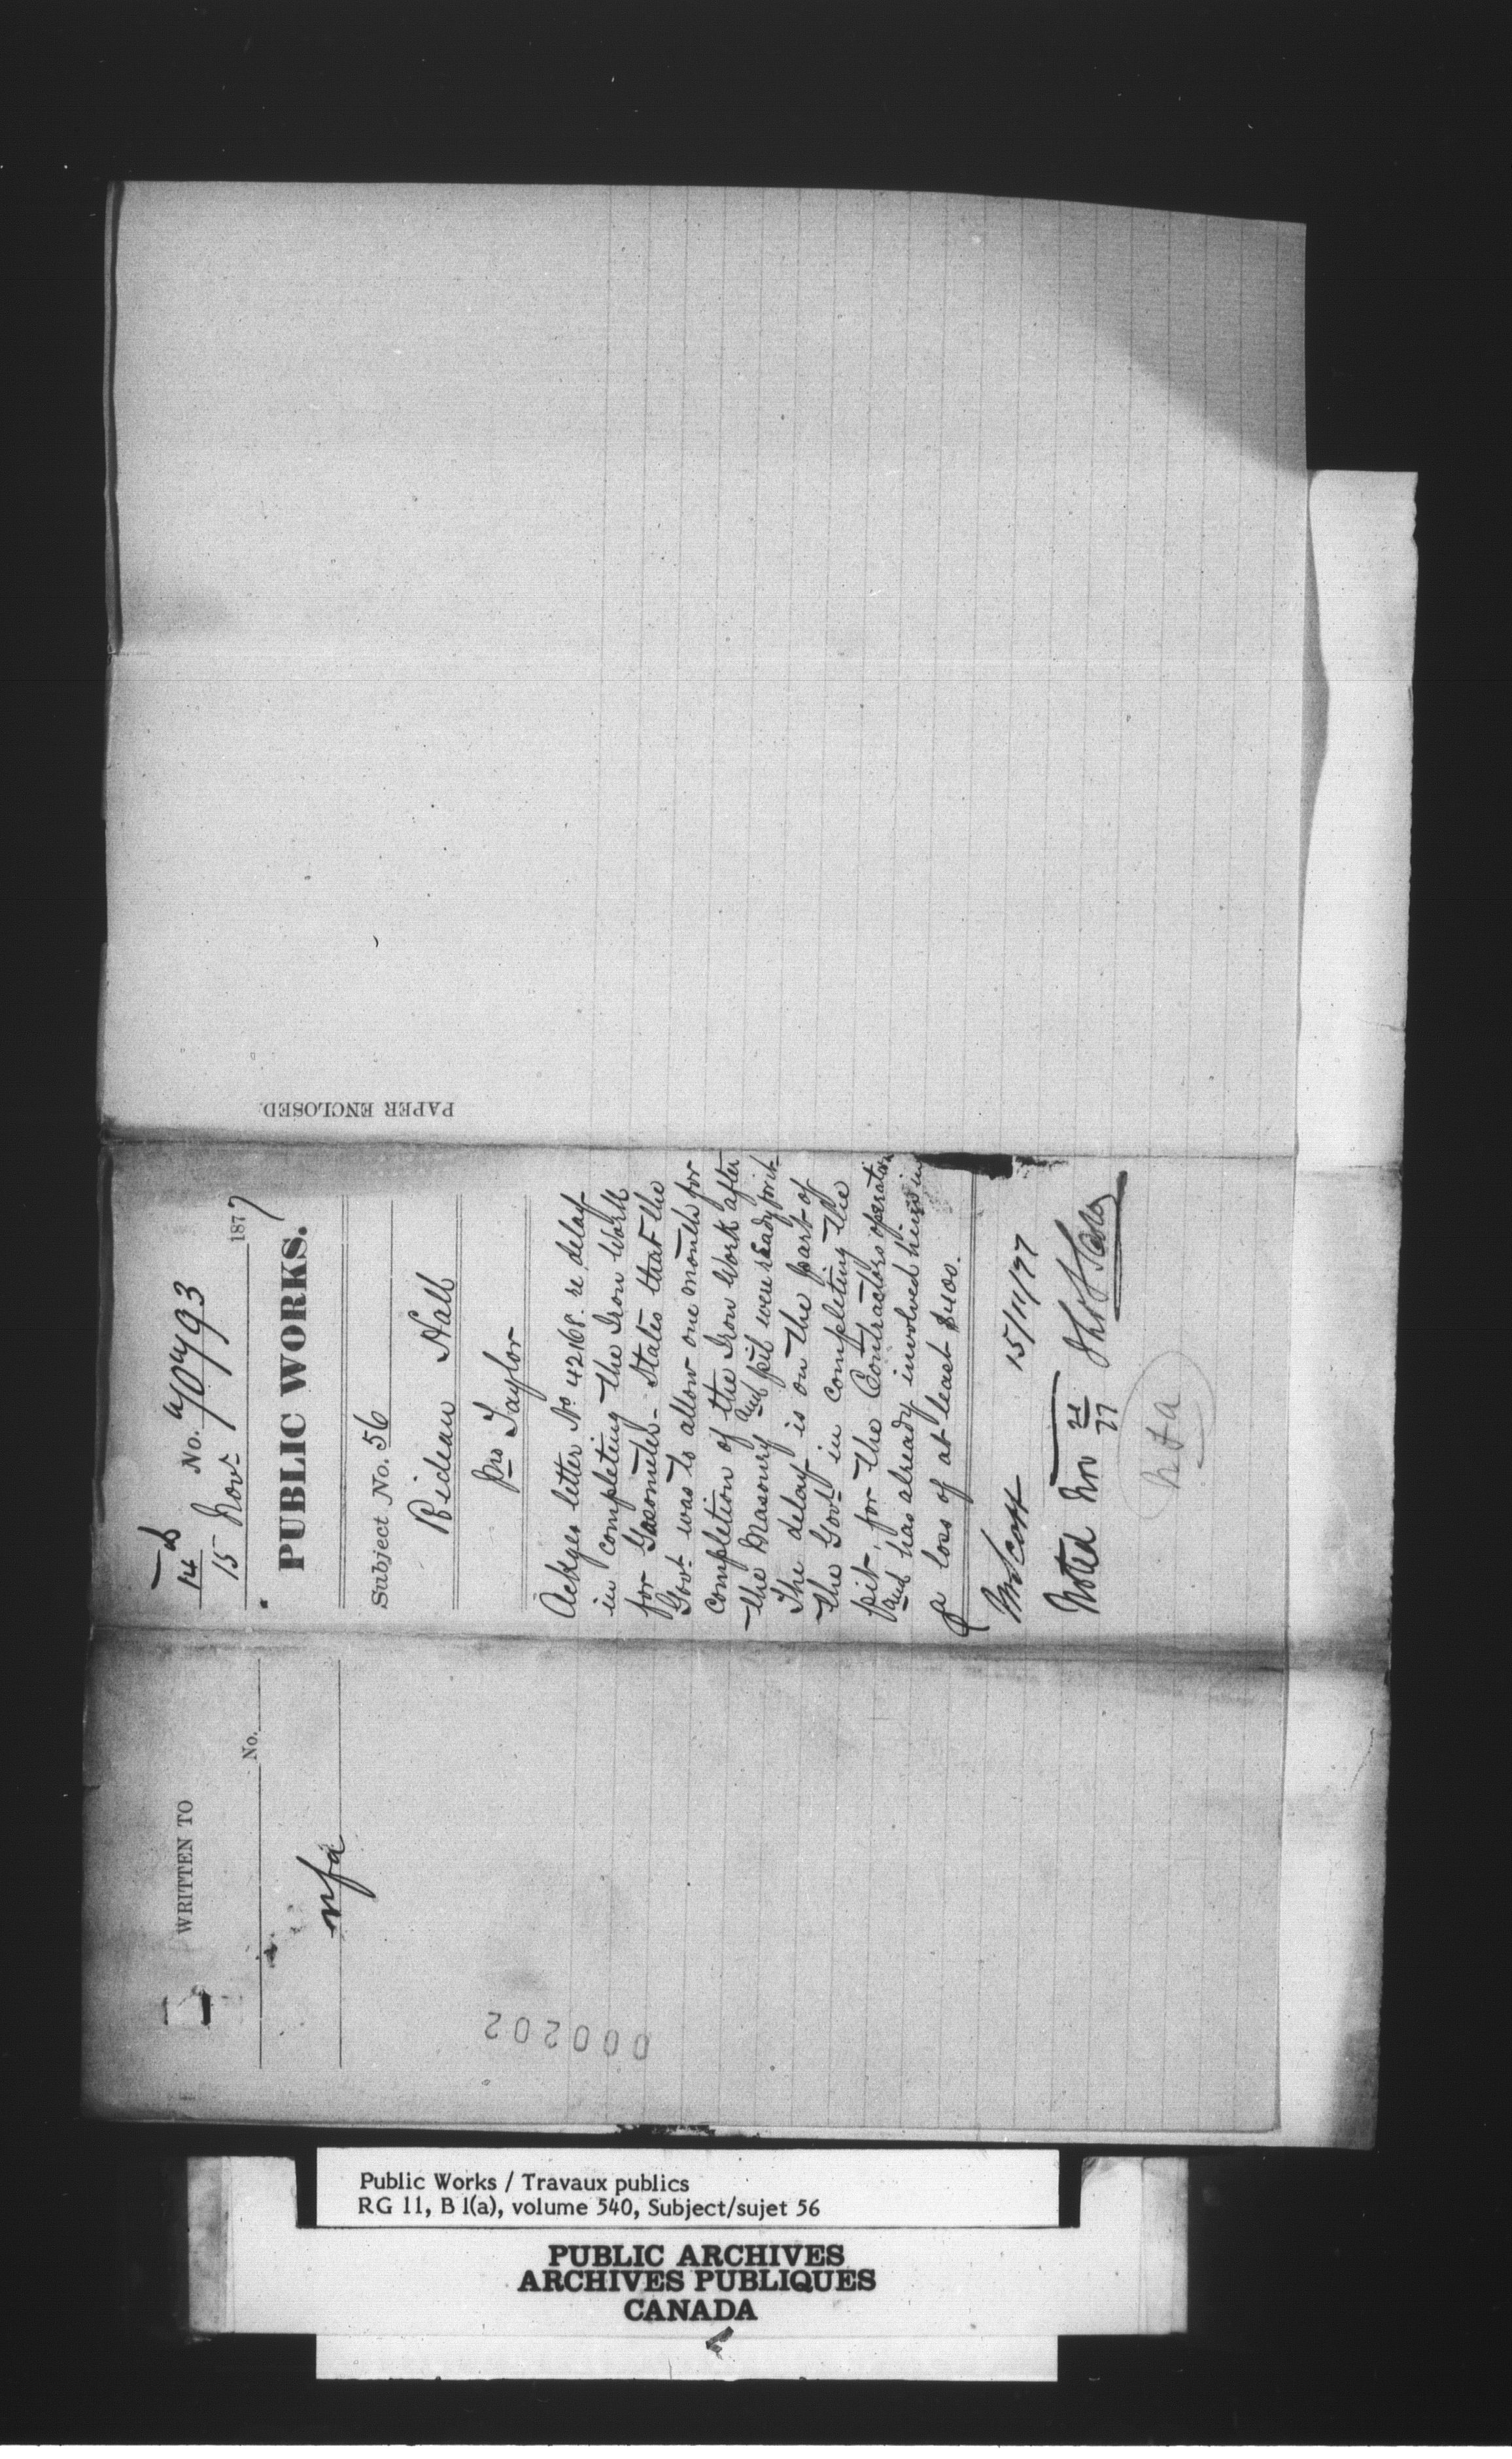 WRITTEN TO
No.
nfa
000202
14
No. 70793
15 Novr. 1877
PUBLIC WORKS.
Subject No. 56
Rideau Hall
Jas Taylor
Ackges letter No 42168. re delay
in completing the Iron Work
for Gasometer - States that the
Govt was to allow one month for
completion of the Iron Work after
the Masonry and pit were ready for it
The delay is on the part of
the Govt in completing the
pit, for the Contractors operation
and has already involved him in
a loss of at least $400.
Mr Scott 15/11/77
Noted Nov 21/77
nfa
PAPER ENCLOSED.
Public Works / Travaux publics
RG 11, B 1(a), volume 540, Subject/sujet 56
PUBLIC ARCHIVES
ARCHIVES PUBLIQUES
CANADA